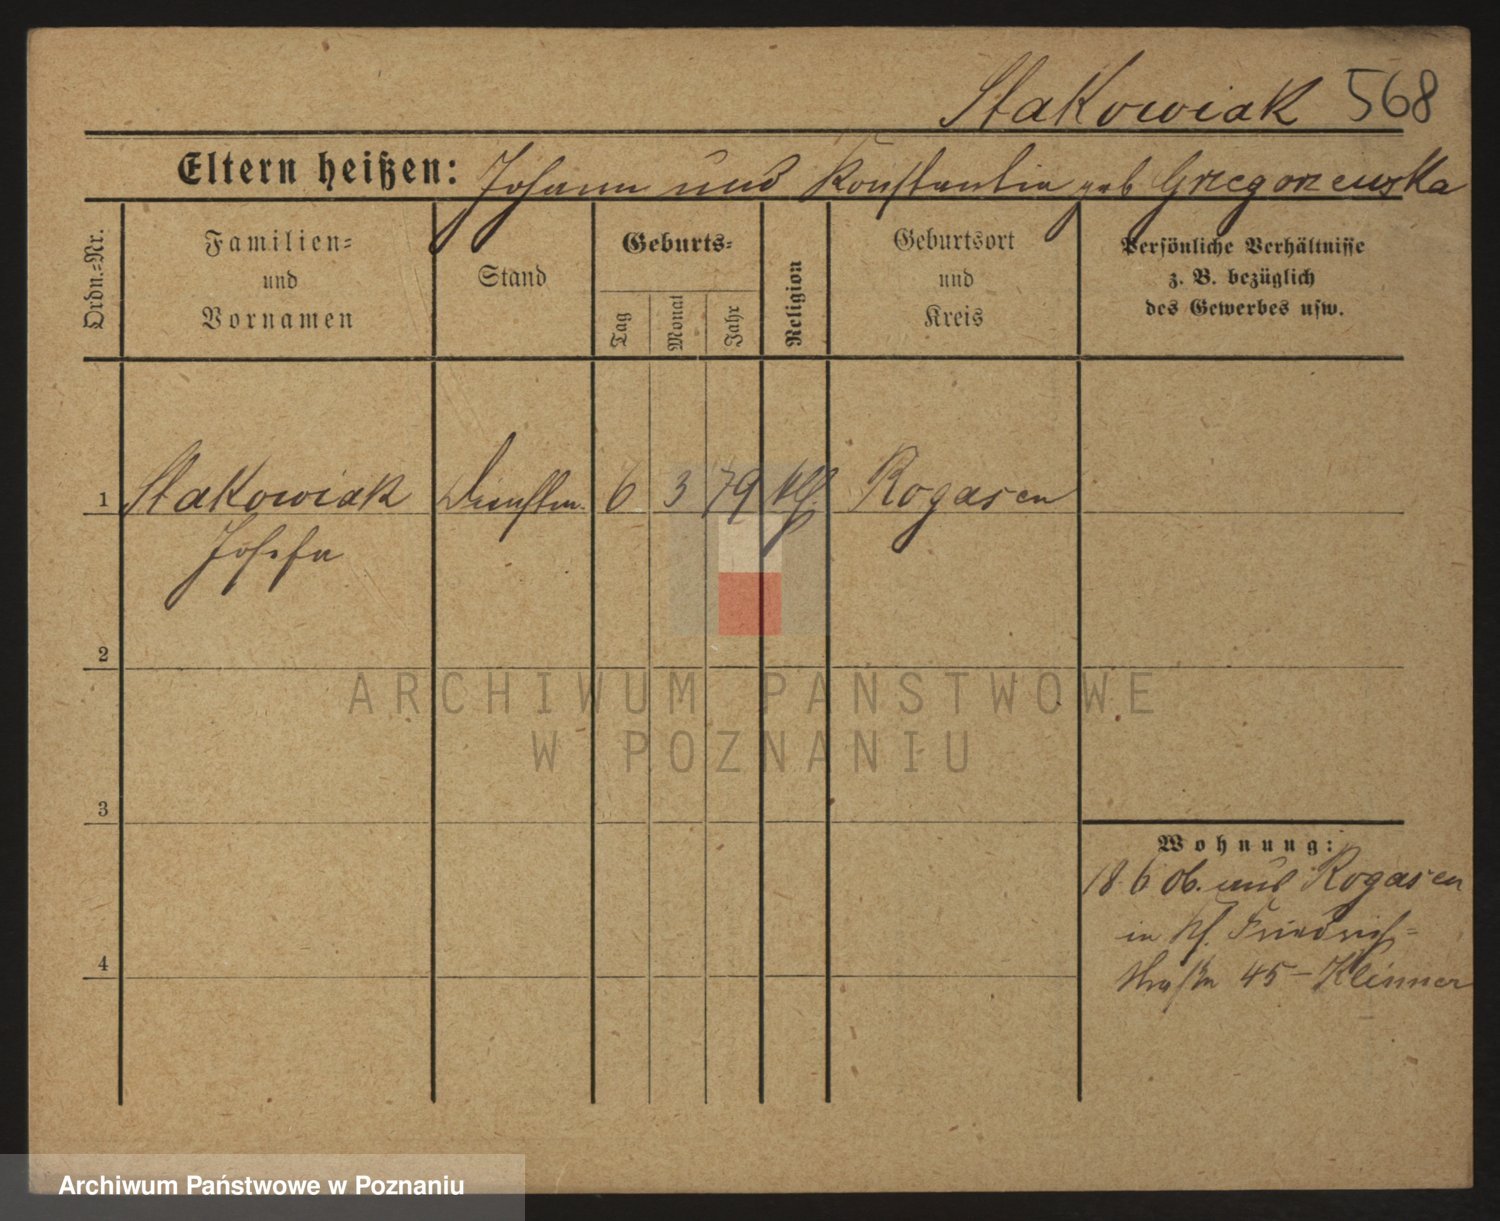 Stakowiak 568
Eltern heißen: Johann und Konstantin geb Gregorzewska
Ordn.=Nr.
Familien=
und
Vornamen
Stand
Geburts=
Tag
Monat
Jahr
Religion
Geburtsort
und
Kreis
Persönliche Verhältnisse
z. B. bezüglich
des Gewerbes usw.
1 Stakowiak Dienstm. 6 3 79 kth. Rogasen
Josefa
2
3
4
Wohnung:
18.6 06. aus Rogasen
in Friedrich=
straße 45 – Klinner
ARCHIWUM PAŃSTWOWE
W POZNANIU
Archiwum Państwowe w Poznaniu